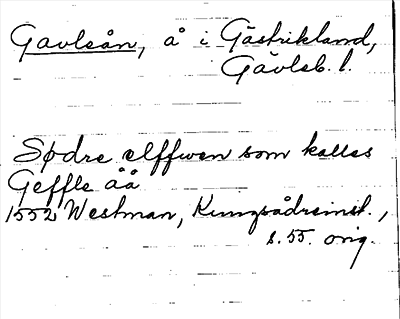 Gavleån, å i Gästrikland,
Gävleb. l.
Södre elffwen som kalles
Geffle åå
1552 Westman, Kungsådreinst.,
s. 55. orig.